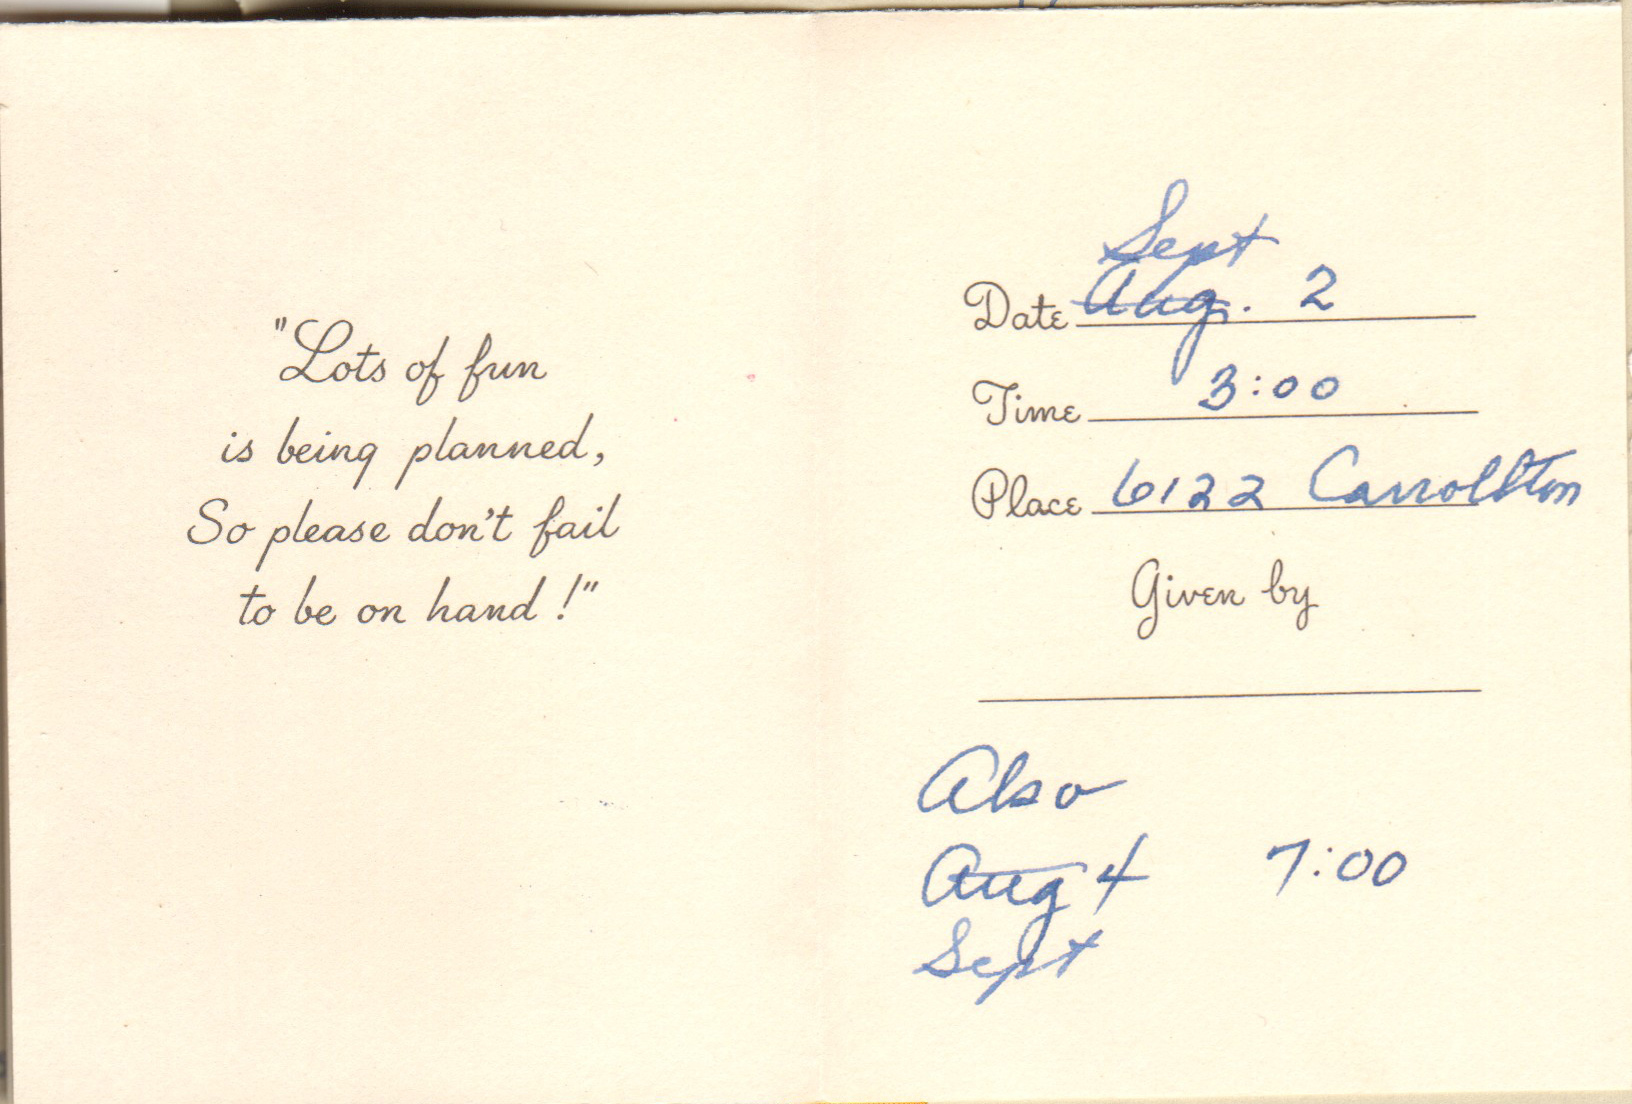 "Lots of fun
is being planned,
So please don't fail
to be on hand!"
Sept
Date Aug. 2
Time 3:00
Place 6122 Carrollton
Given by
Also
Aug 4 7:00
Sept